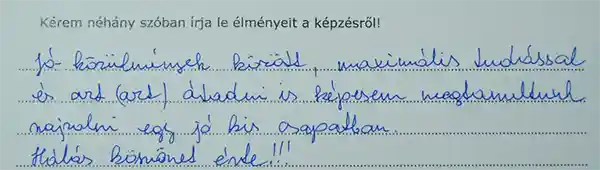 Kérem néhány szóban írja le élményeit a képzésről!
Jó körülmények között, maximális tudással
és azt (azt) átadni is képesem megtanultunk
rajzolni egy jó kis csapatban.
Hálás köszönet érte!!!